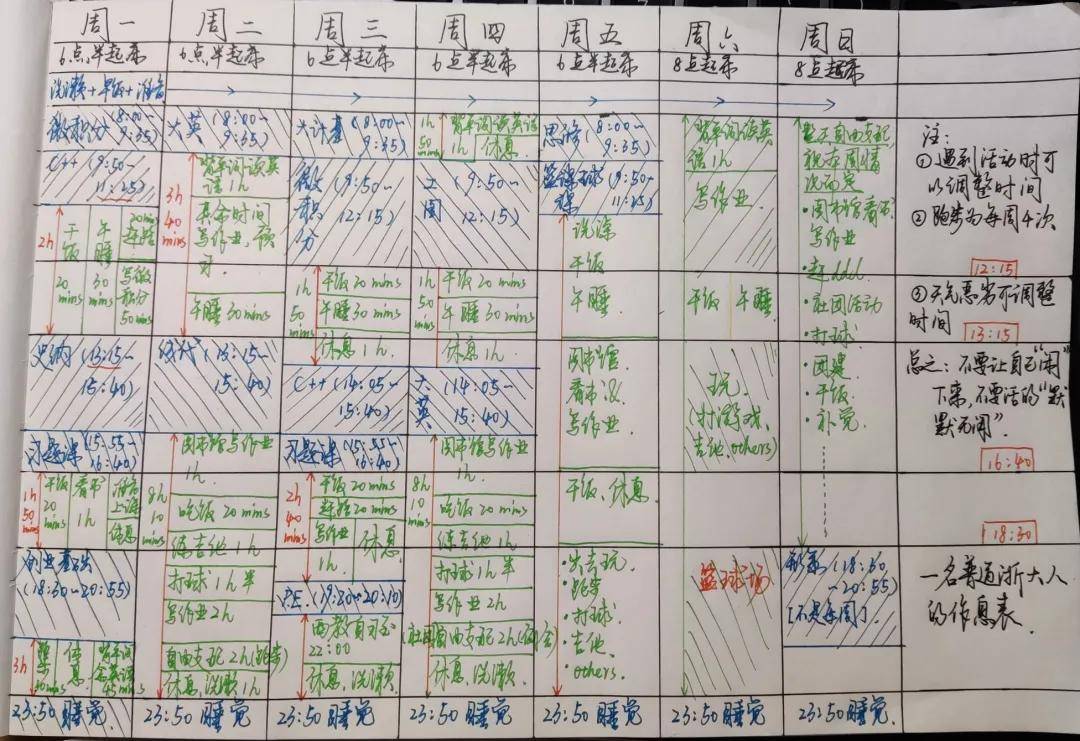 周一
周二
周三
周四
周五
周六
周日
6点半起床
6点半起床
6点半起床
6点半起床
6点半起床
8点起床
8点起床
洗漱+早饭+准备
微积分(8:00~
9:35)
C++(9:50~
11:25)
2h
干饭
20
mins
午睡
30
mins
20mins
写微
积分
50mins
史纲(13:15~
15:40)
习题课(15:55~
16:40)
1h
50
mins
干饭
20
mins
看书
1h
准备
上课
休息
创业基础
(18:30~20:55)
3h
跑步
休息
背单词
45mins
23:50睡觉
大英(8:00~
9:35)
3h
40
mins
背单词读英
语1h
其余时间
写作业,
午睡30mins
线代(13:15~
15:40)
8h
10
mins
图书馆写作业
1h.
吃饭20mins
练吉他1h
打球1h半
写作业2h
自由支配2h(跑步)
休息,洗漱1h
23:50睡觉
大计基(8:00~
9:35)
微
积
分
(9:50~
12:15)
1h
50
mins
干饭20mins
午睡30mins
休息1h.
C++(14:05~
15:40)
习题课(15:55~
16:40)
2h
40
mins
干饭20mins
20mins
写作业
1h.
休息
P.E.(19:20~20:10)
西教自习至
22:00
休息,洗漱.
23:50睡觉
1h
50
mins
背单词读英语
1h
休息
工
图
(9:50~
12:15)
1h
50
mins
干饭20mins
午睡30mins
休息1h.
大
英
(14:05~
15:40)
8h
10
mins
图书馆写作业
1h.
吃饭20mins
练吉他1h
打球1h半
写作业2h
自由支配2h
休息,洗漱1h
23:50睡觉
思修(8:00~
9:35)
篮球课(9:50~
11:25)
洗澡
干饭
午睡
图书馆
看书&
写作业
干饭、休息
·出去玩.
·跑步
·打球.
·吉他.
·others.
23:50睡觉
背单词读英
语1h
写作业
干饭 午睡
玩.
(打游戏、
吉他、others)
篮球场
23:50睡觉
整天自由支配
视本周情
况而定
·图书馆看书
写作业
·赶ddl
·社团活动
·打球.
·团建
·干饭.
·补觉.
形策(18:30
~20:55)
[不是每周]
23:50睡觉.
注:
①遇到活动时可
以调整时间
②跑步为每周4次
12:15
③天气恶劣可调整
时间
13:15
总之:不要让自己“闲”
下来,不要活的“默
默无闻”.
16:40
18:30
一名普通浙大人
的作息表.